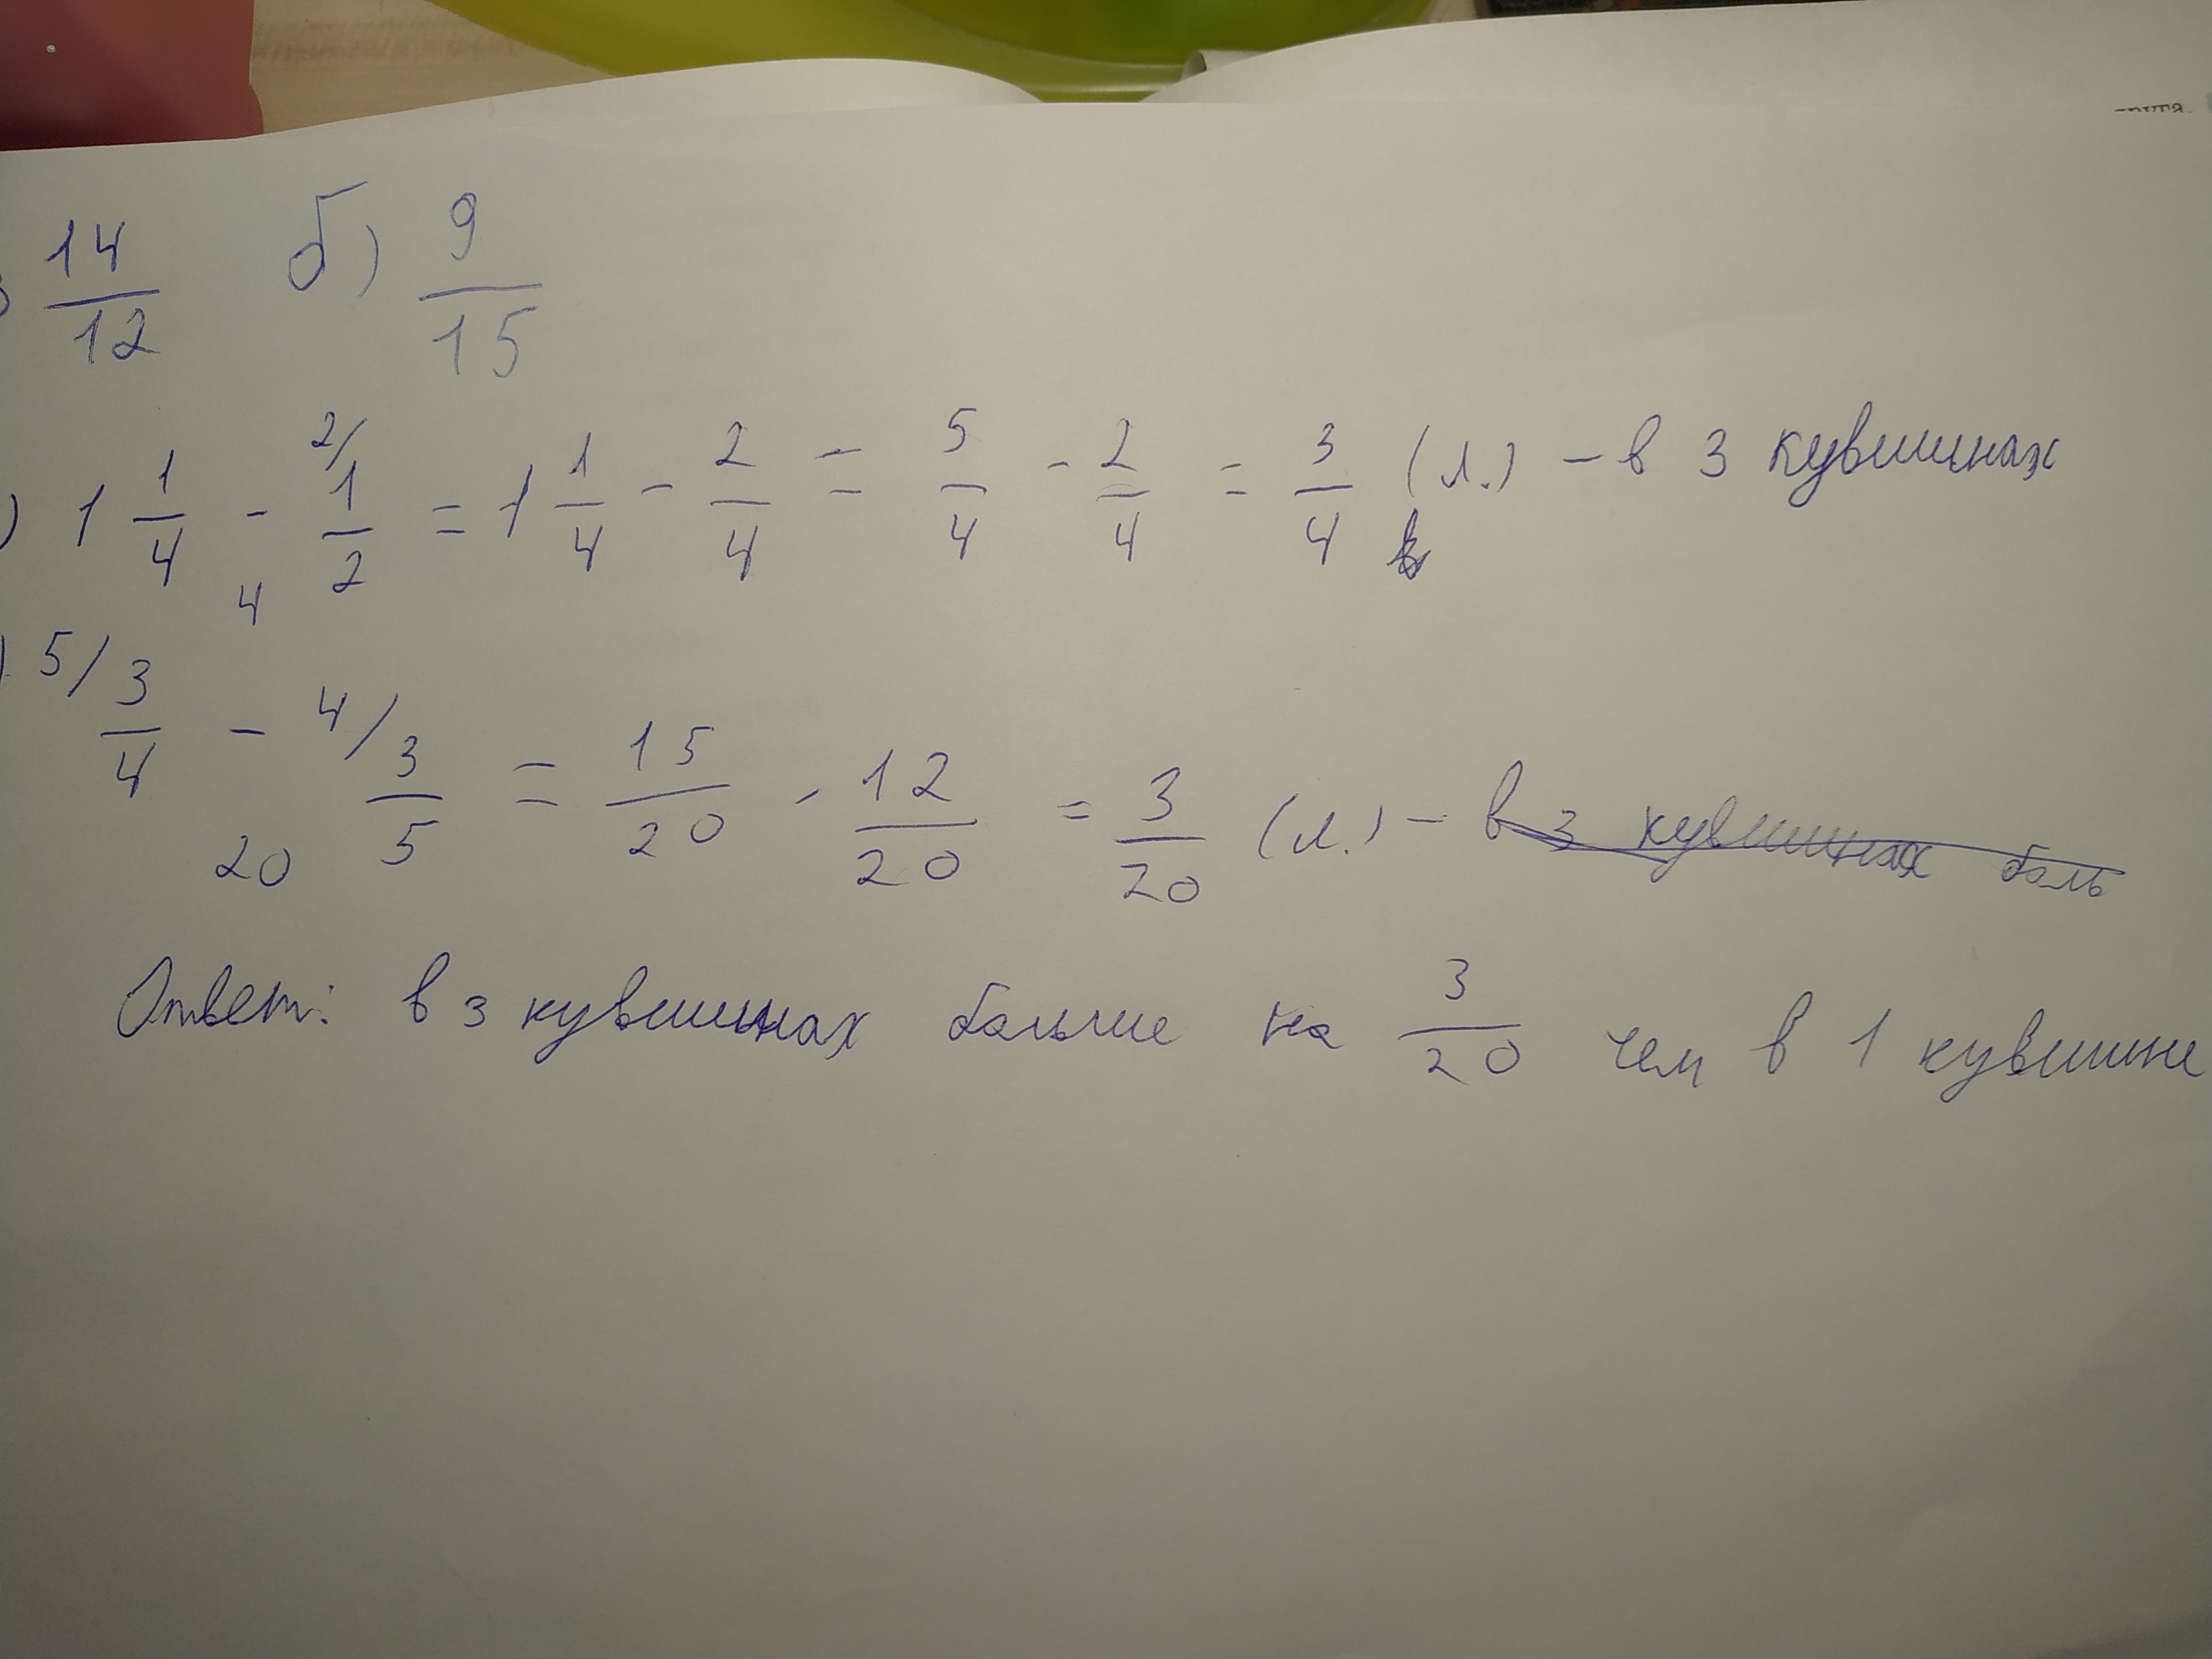 14/12 б) 9/15
) 1 1/4 - 2/ 1/2 = 1 1/4 - 2/4 = 5/4 - 2/4 = 3/4 (л.) - в 3 кувшинах
4
) 5/ 3/4 - 4/ 3/5 = 15/20 - 12/20 = 3/20 (л.) - в 3 кувшинах боль
20
Ответ: в 3 кувшинах больше на 3/20 чем в 1 кувшине